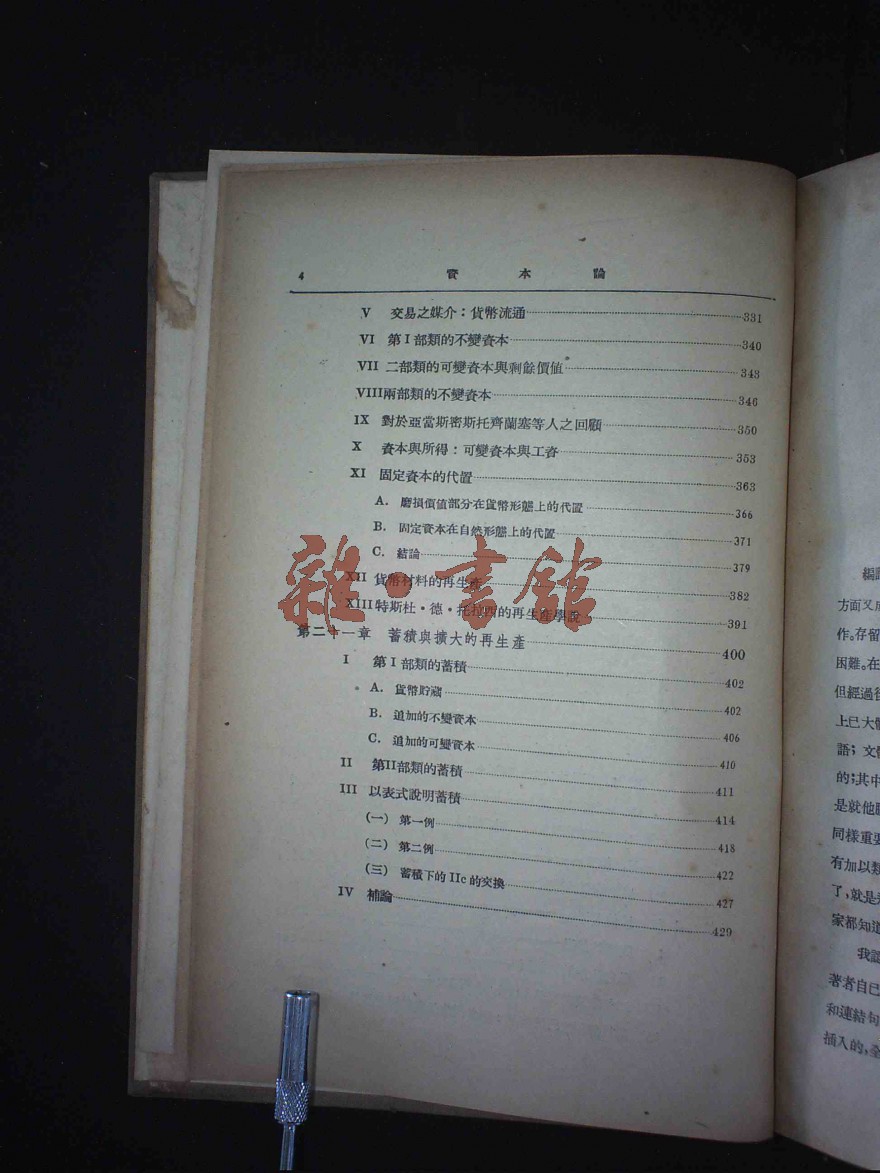 4 資本論
V 交易之媒介：貨幣流通 331
VI 第I部類的不變資本 340
VII 二部類的可變資本與剩餘價値 343
VIII兩部類的不變資本 346
IX 對於亞當斯密斯托齊蘭塞等人之回顧 350
X 資本與所得：可變資本與工資 353
XI 固定資本的代置 363
A. 磨損價値部分在貨幣形態上的代置 366
B. 固定資本在自然形態上的代置 371
C. 結論 379
XII 貨幣材料的再生產 382
XIII特斯杜·德·托拉西的再生產學說 391
第二十一章 蓄積與擴大的再生產 400
I 第I部類的蓄積 402
A. 貨幣貯藏 402
B. 追加的不變資本 406
C. 追加的可變資本 410
II 第II部類的蓄積 411
III 以表式說明蓄積 414
(一) 第一例 418
(二) 第二例 422
(三) 蓄積下的IIc的交換 427
IV 補論 429
雜·書館
編
方面又
作。存留
困難。在
但經過
上已大
語；文
的；其中
是就他
同樣重要
有加以
了，就是
家都知道
我
著者自己
和連結句
插入的，全